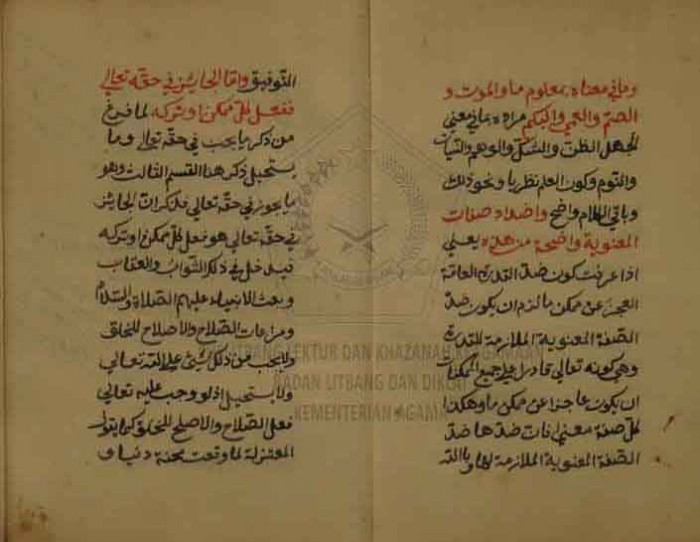 وما في معناه بمعلوم ما والموت و
الصمم والعمى والبكم مراده بما في معنى
الجهل الظن والشك والوهم والنسيان
والنوم وكون العلم نظريا ونحو ذلك
وباقي الكلام واضح واضداد صفات
المعنوية واضحة من هذه يعني
اذا عرفت كون ضد القدرة العامة
العجز عن ممكن ما لزم ان يكون ضد
الصفة المعنوية الملازمة للقدرة
وهي كونه تعالى قادرا على جميع الممكنات
ان يكون عاجزا عن ممكن ما وهكذا
كل صفة معنى فان ضدها ضد
الصفة المعنوية الملازمة لها وبالله
التوفيق واما الجائز في حقه تعالى
ففعل كل ممكن او تركه لما فرغ
من ذكر ما يجب في حقه تعالى وما
يستحيل ذكر هنا القسم الثالث وهو
ما يجوز في حقه تعالى فذكر ان الجائز
في حقه تعالى هو فعل كل ممكن او تركه
فيدخل في ذلك الثواب والعقاب
وبعث الانبياء عليهم الصلاة والسلام
ومراعات الصلاح والاصلاح للخلق
ولا يجب من ذلك شئ على الله تعالى
ولا يستحيل اذ لو وجب عليه تعالى
فعل الصلاح والاصلح للخلق كما يقوله
المعتزلة لما وقعت محنة دنيا و
PUSLITBANG LEKTUR DAN KHAZANAH KEAGAMAAN
BADAN LITBANG DAN DIKLAT
KEMENTERIAN AGAMA